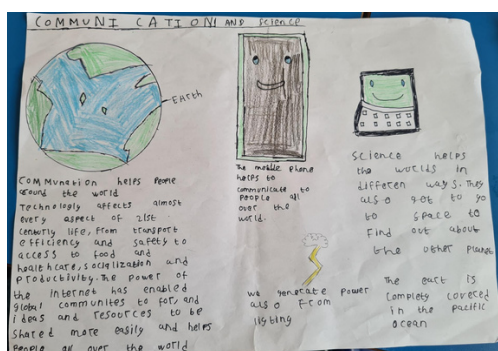 COMMUNICATION AND Science
EARTH
Communation helps People
around the world
Technologly affects almost
every aspect of 21st
centurly life, from transport
efficiency and safety to
access to food and
healthcare, socialization and
productivity. The power of
the internet has enabled
global communites to for, and
ideas and resources to be
shared more easily and helps
People all over the world
The moblie phone
helps to
communicate to
people all
over the
world.
we generate power
also from
ligting
Science helps
the worlds in
differen ways. They
also get to go
to space to
Find out about
the other planet
The eart is
complety covered
in the pacific
ocean